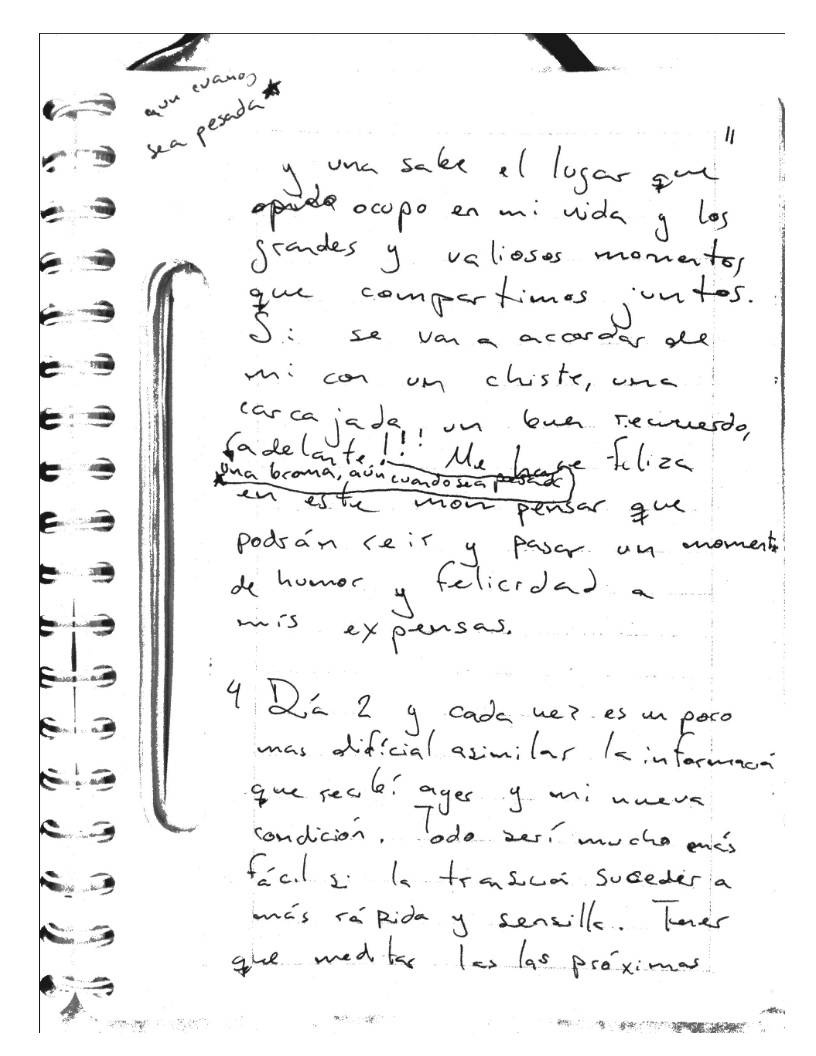 aun cuanos
sea pesada*
11
y una sabe el lugar que
ocupo en mi vida y los
grandes y valiosos momentos
que compartimos juntos.
Si se van a accordar de
mi con um chiste, una
carcajada, un buen recuerdo,
adelante!!! Me hace feliza
*una broma, aún cuando sea pesada
en este mon pensar que
podrán reir y pasar un momento
de humor y felicidad a
mis expensas.
4 Día 2 y cada vez es un poco
mas difícial asimilar la informació
que recibí ayer y mi nueva
condición. Todo serí mucho más
fácil si la transició suceder a
más rápida y sensilla. Tener
que meditar las las próximas